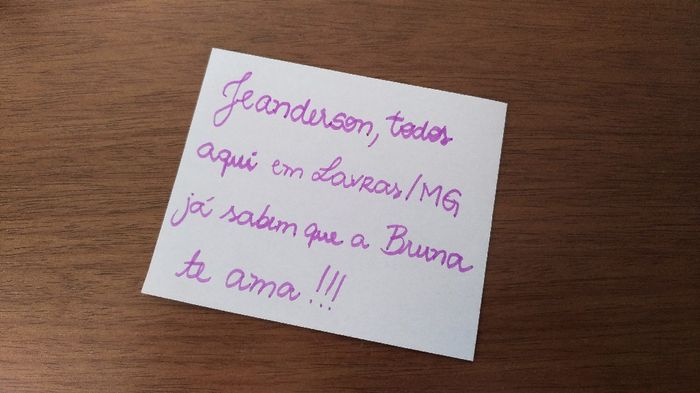 Jeanderson, todos
aqui em Lavras/MG
já sabem que a Bruna
te ama!!!